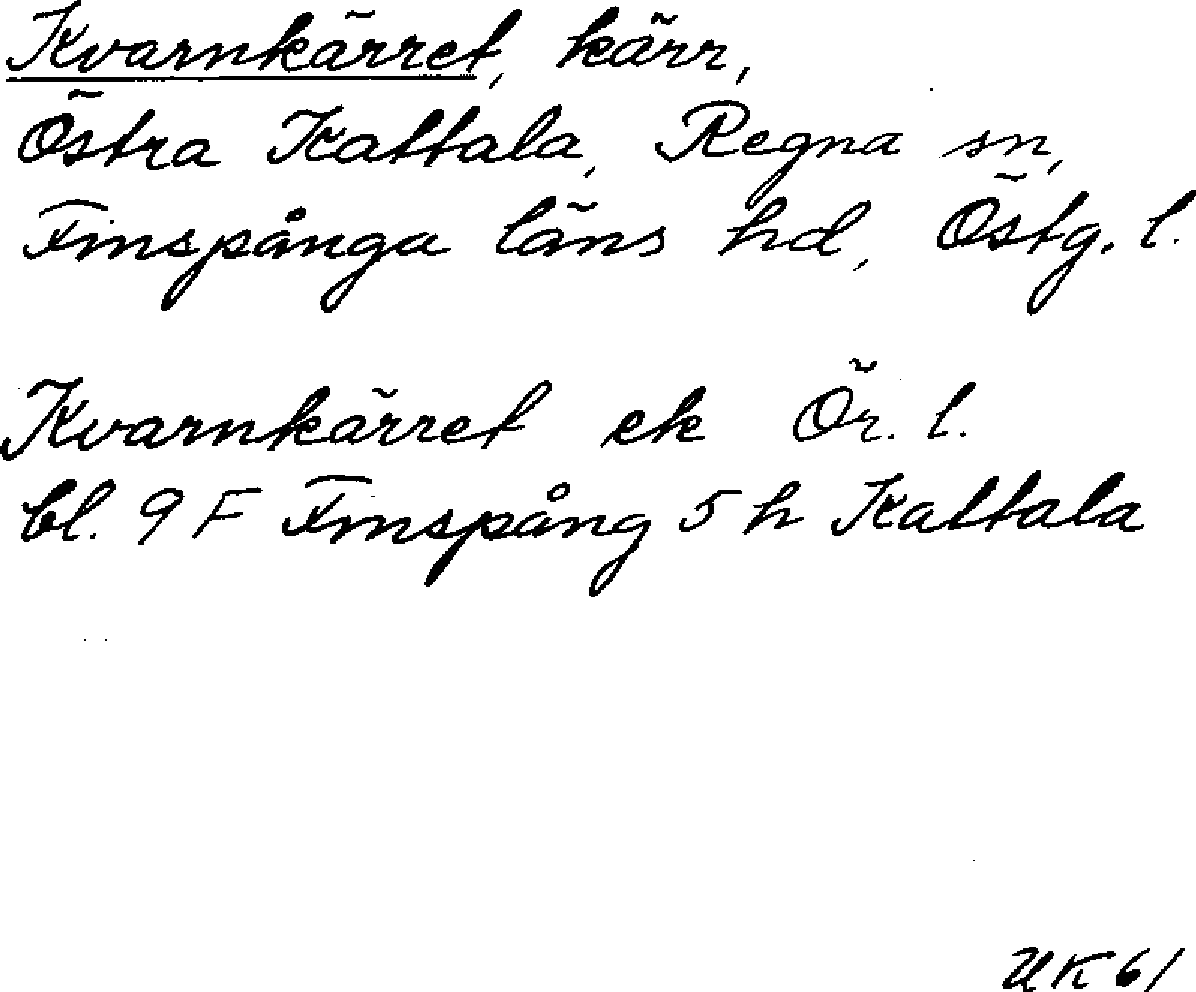 Kvarnkärret, kärr,
Östra Kattala, Regna sn,
Finspånga läns hd, Östg. l.
Kvarnkärret ek Ör. l.
bl. 9 F Finspång 5 h Kattala
UK 61